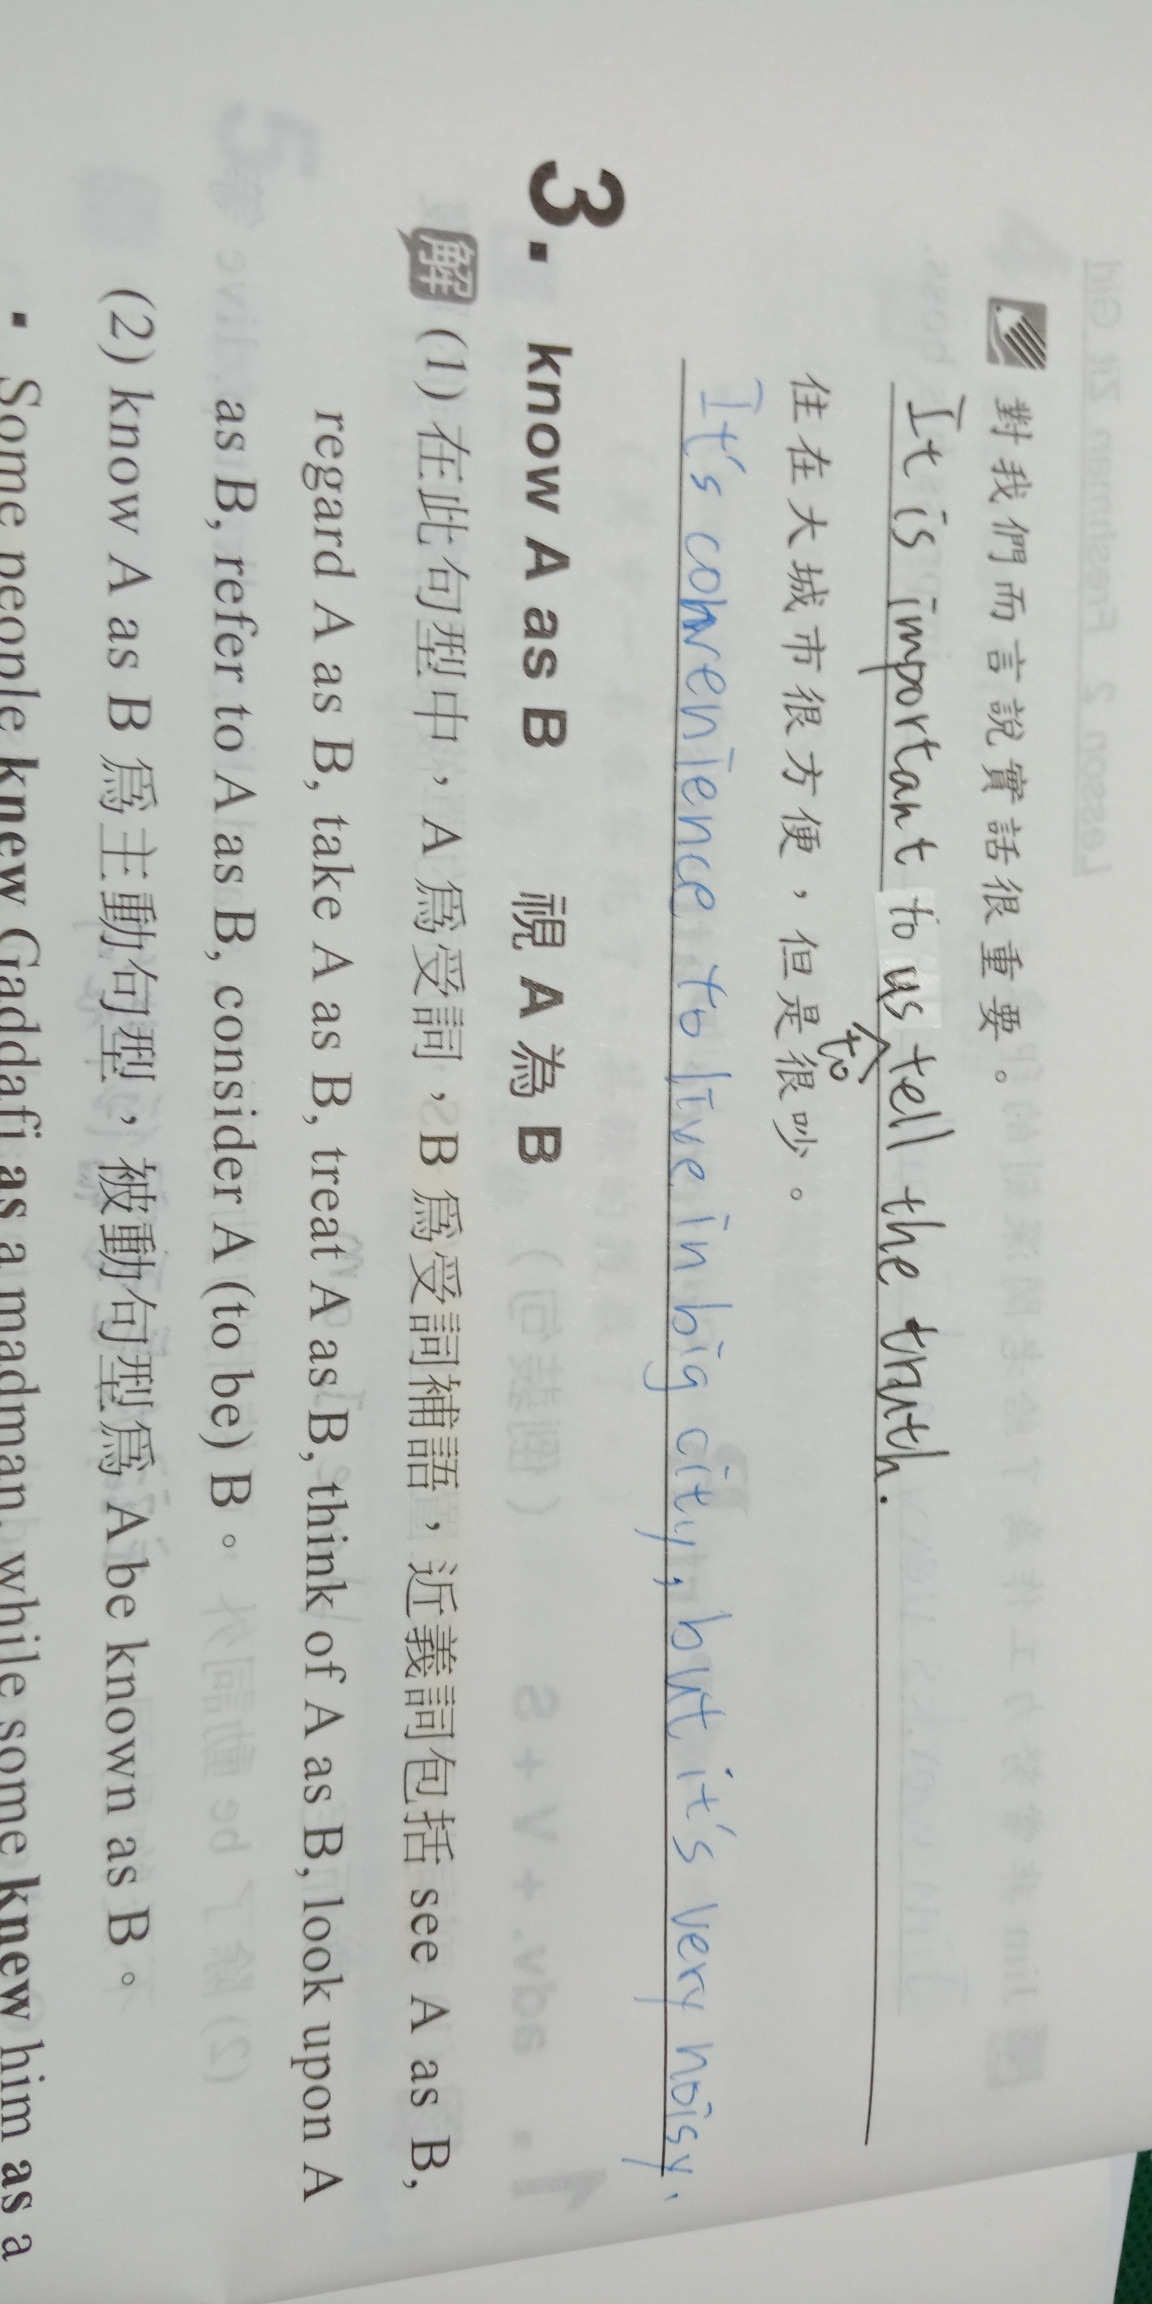 對我們而言說實話很重要。
It is important to us to tell the truth.
住在大城市很方便，但是很吵。
It's convenience to live in big city, but it's very noisy.
3. know A as B 視 A 為 B
解 (1) 在此句型中，A 爲受詞，B 爲受詞補語，近義詞包括 see A as B,
regard A as B, take A as B, treat A as B, think of A as B, look upon A
as B, refer to A as B, consider A (to be) B。
(2) know A as B 爲主動句型，被動句型爲 A be known as B。
▪ Some people knew Gaddafi as a madman, while some knew him as a